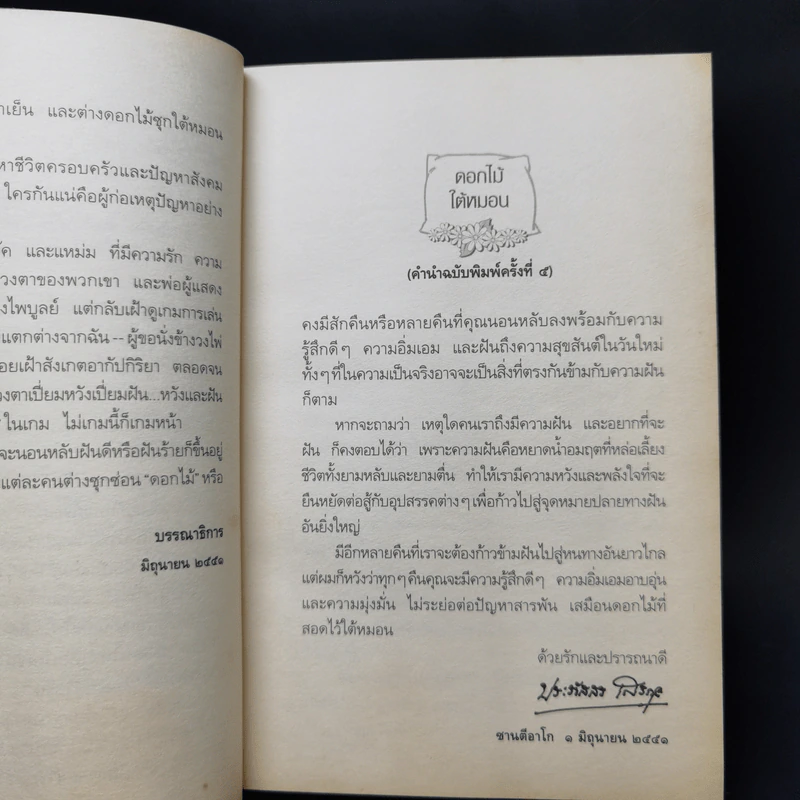 าเย็น และต่างดอกไม้ซุกใต้หมอน
หาชีวิตครอบครัวและปัญหาสังคม
ใครกันแน่คือผู้ก่อเหตุปัญหาอย่าง
และแหม่ม ที่มีความรัก ความ
วงตาของพวกเขา และพ่อผู้แสดง
งไพบูลย์ แต่กลับเฝ้าดูเกมการเล่น
แตกต่างจากฉัน -- ผู้ขอนั่งข้างวงไพ่
อยเฝ้าสังเกตอากัปกิริยา ตลอดจน
วงตาเปี่ยมหวังเปี่ยมฝัน...หวังและฝัน
ในเกม ไม่เกมนี้ก็เกมหน้า
จะนอนหลับฝันดีหรือฝันร้ายก็ขึ้นอยู่
แต่ละคนต่างซุกซ่อน “ดอกไม้” หรือ
บรรณาธิการ
มิถุนายน ๒๕๕๑
ดอกไม้
ใต้หมอน
(คำนำฉบับพิมพ์ครั้งที่ ๕)
คงมีสักคืนหรือหลายคืนที่คุณนอนหลับลงพร้อมกับความ
รู้สึกดีๆ ความอิ่มเอม และฝันถึงความสุขสันต์ในวันใหม่
ทั้งๆ ที่ในความเป็นจริงอาจจะเป็นสิ่งที่ตรงกันข้ามกับความฝัน
ก็ตาม
หากจะถามว่า เหตุใดคนเราถึงมีความฝัน และอยากที่จะ
ฝัน ก็คงตอบได้ว่า เพราะความฝันคือหยาดน้ำอมฤตที่หล่อเลี้ยง
ชีวิตทั้งยามหลับและยามตื่น ทำให้เรามีความหวังและพลังใจที่จะ
ยืนหยัดต่อสู้กับอุปสรรคต่างๆ เพื่อก้าวไปสู่จุดหมายปลายทางฝัน
อันยิ่งใหญ่
มีอีกหลายคืนที่เราจะต้องก้าวข้ามฝันไปสู่หนทางอันยาวไกล
แต่ผมก็หวังว่าทุกๆ คืนคุณจะมีความรู้สึกดีๆ ความอิ่มเอมอาบอุ่น
และความมุ่งมั่น ไม่ระย่อต่อปัญหาสารพัน เสมือนดอกไม้ที่
สอดไว้ใต้หมอน
ด้วยรักและปรารถนาดี
ซานติอาโก ๑ มิถุนายน ๒๕๕๑